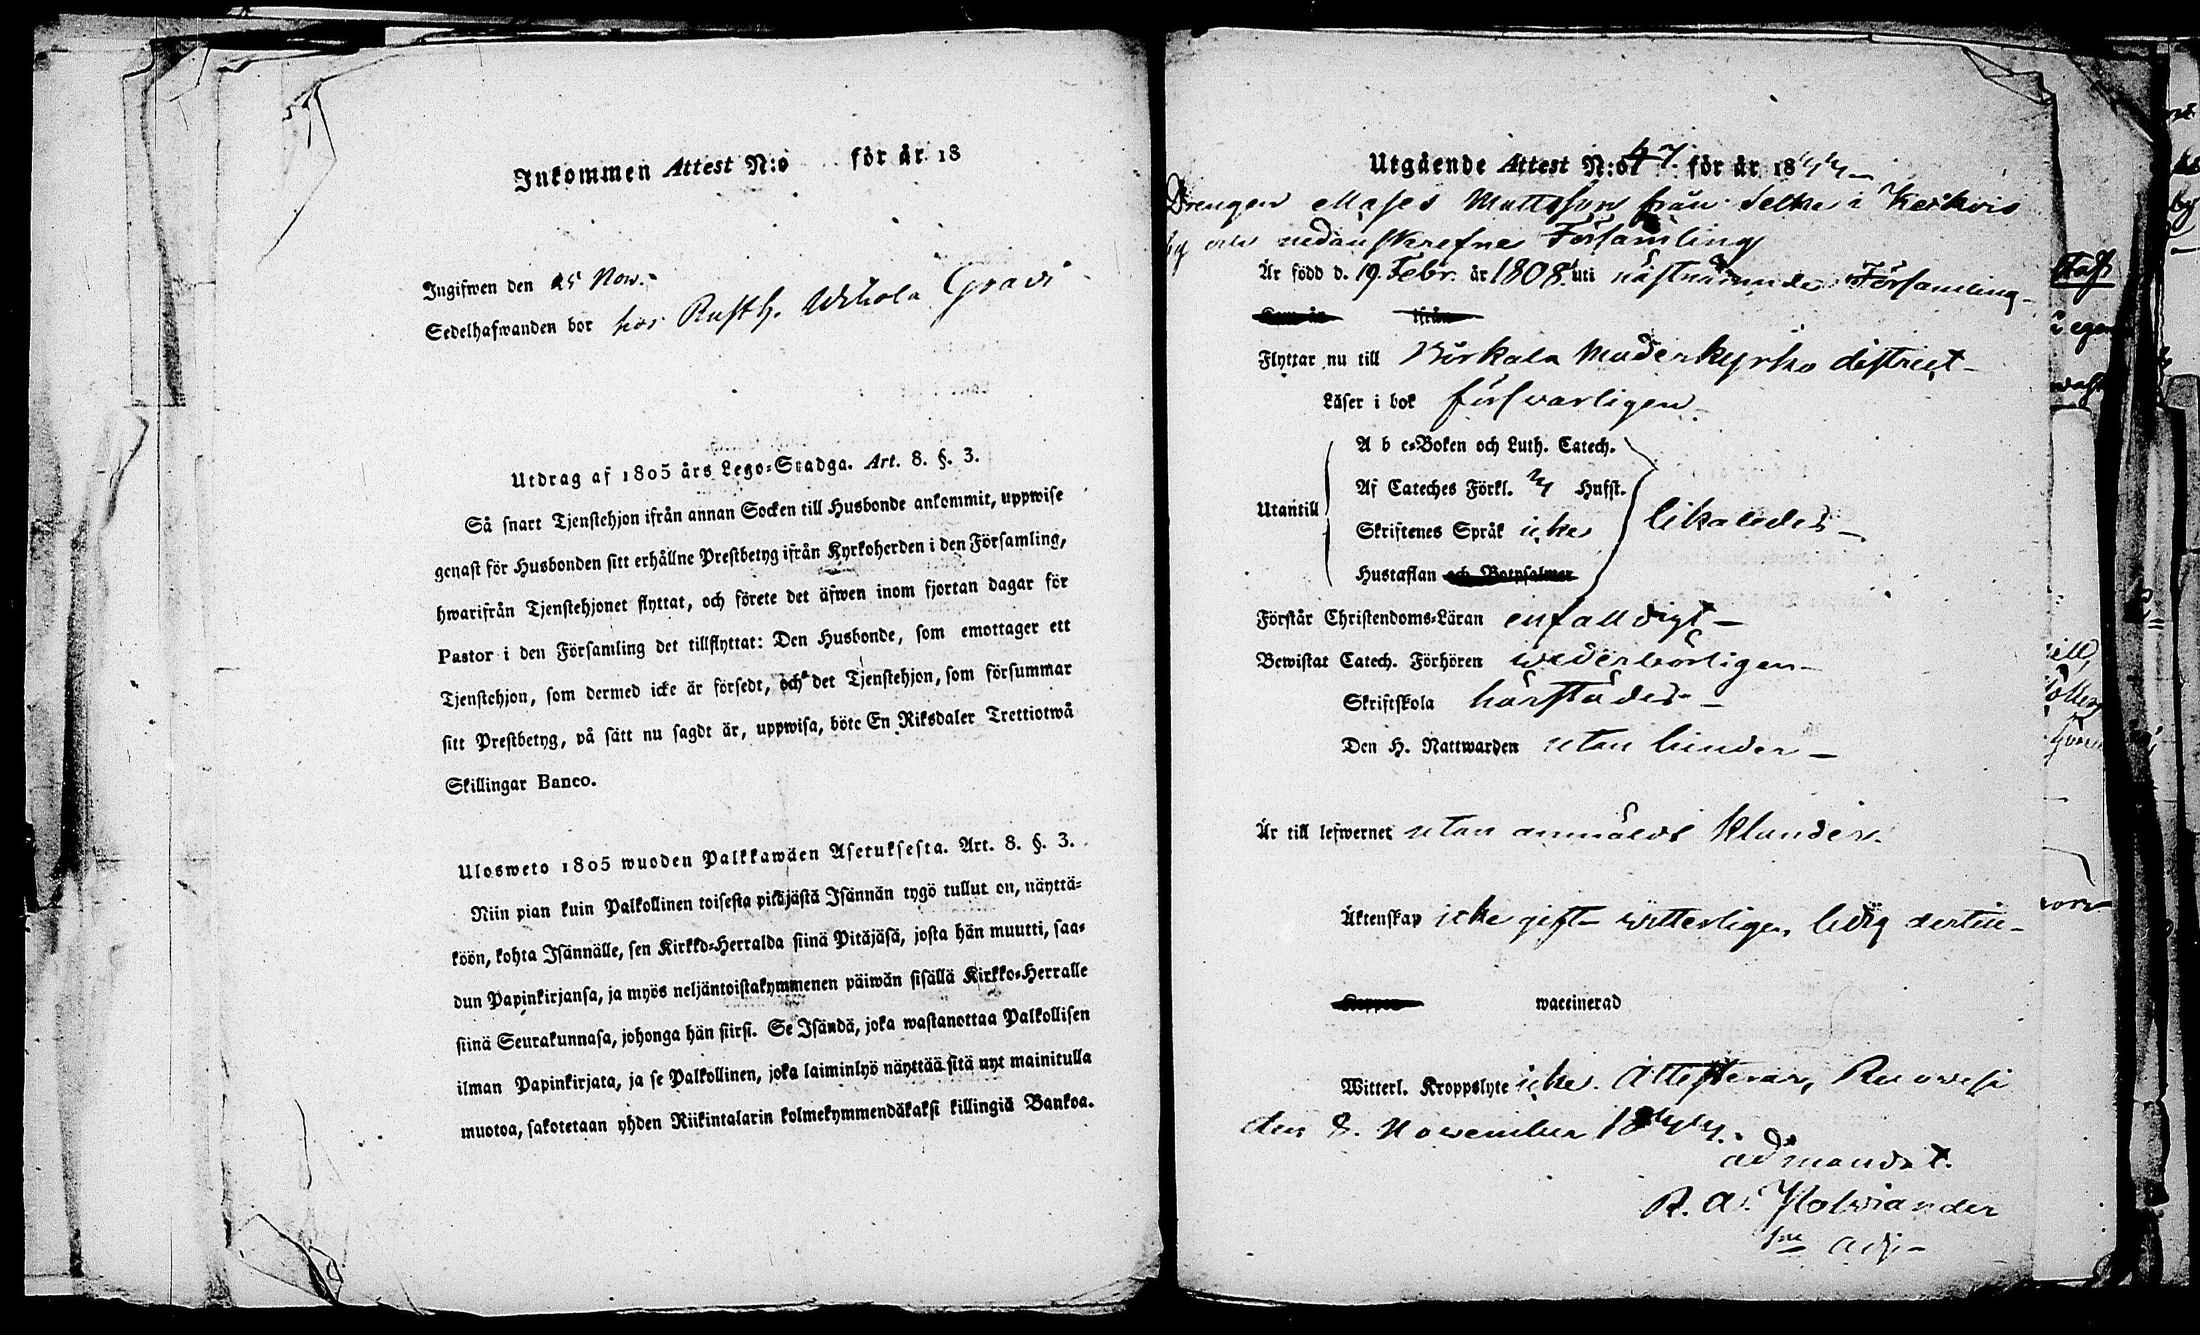 Inkommen Attest N:o för år 18
Ingifwen den 25 Now.
Sedelhafwanden bor hos Rusth. Wihola Gradi
Utdrag af 1805 års Lego-Stadga. Art. 8. §. 3.
Så snart Tjenstehjon ifrån annan Socken till Husbonde ankommit, uppwise
genast för Husbonden sitt erhållne Prestbetyg ifrån Kyrkoherden i den Församling,
hwarifrån Tjenstehjonet flyttat, och förete det äfwen inom fjortan dagar för
Pastor i den Församling det tillflyttat: Den Husbonde, som emottager ett
Tjenstehjon, som dermed icke är försedt, och det Tjenstehjon, som försummar
sitt Prestbetyg, på sätt nu sagdt är, uppwisa, böte En Riksdaler Trettiotwå
Skillingar Banco.
Ulosweto 1805 wuoden Palkkawäen Asetuksesta. Art. 8. §. 3.
Niin pian kuin Palkollinen toisesta pitäjästä Isännän tygö tullut on, näyttä-
köön, kohta Isännälle, sen Kirkko-Herralda siinä Pitäjäsä, josta hän muutti, saa-
dun Papinkirjansa, ja myös neljäntoistakymmenen päiwän sisällä Kirkko-Herralle
siinä Seurakunnasa, johonga hän siirsi. Se Isändä, joka wastanottaa Palkollisen
ilman Papinkirjata, ja se Palkollinen, joka laiminlyö näyttää sitä nyt mainitulla
muotoa, sakotetaan yhden Riikintalarin kolmekymmendäkaksi killingiä Bankoa.
Utgående Attest N:o 47 för år 1844
Drengen Moses Mattsson från Selkee i Kerkvis
by och nedanskrefne Församling
Är född d. 19 Febr. år 1808. uti nästnämnde Församling
Flyttar nu till Birkala Moderkyrko district
Läser i bok försvarligen
A b c-Boken och Luth. Catech.
Af Cateches Förkl. Hufst.
Utantill Skriftenes Språk icke likaledes
Hustaflan och Botpsalmer
Förstår Christendoms-Läran enfalldigt
Bewistat Catech. Förhören wederbörligen
Skriftskola härstädes
Den H. Nattwarden utan hinder
Är till lefwernet utan anmäldt klander.
Äktenskap icke gift witterligen, ledig dertill
waccinerad
Witterl. Kroppslyte icke. Attesterar, Ruovesi
den 8. November 1844.
ad mandat.
R. A. Holwiander
Adj.